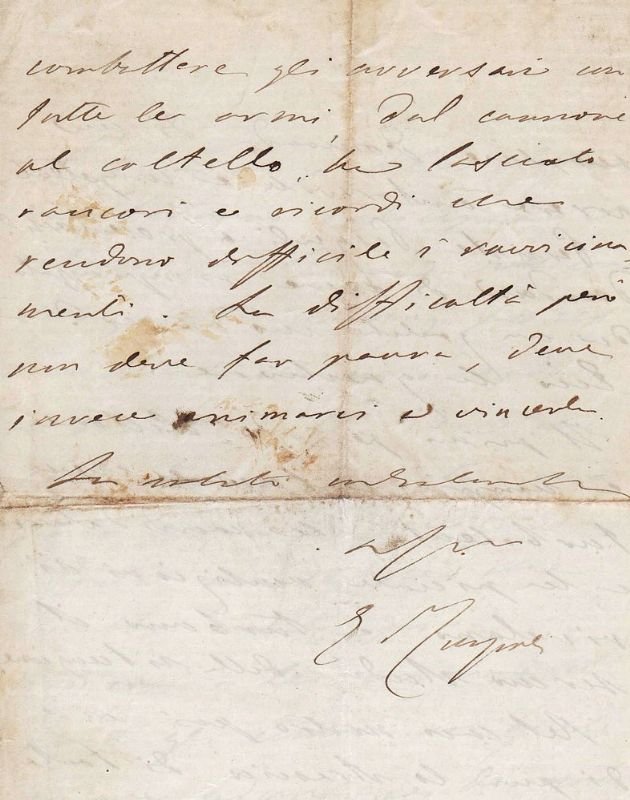 combattere gli avversari con
tutte le armi, dal cannone
al coltello, ha lasciato
rancori e ricordi che
rendono difficile i ravvicina-
menti. La difficoltà però
non deve far paura, deve
invece animarci a vincerla.
La
E